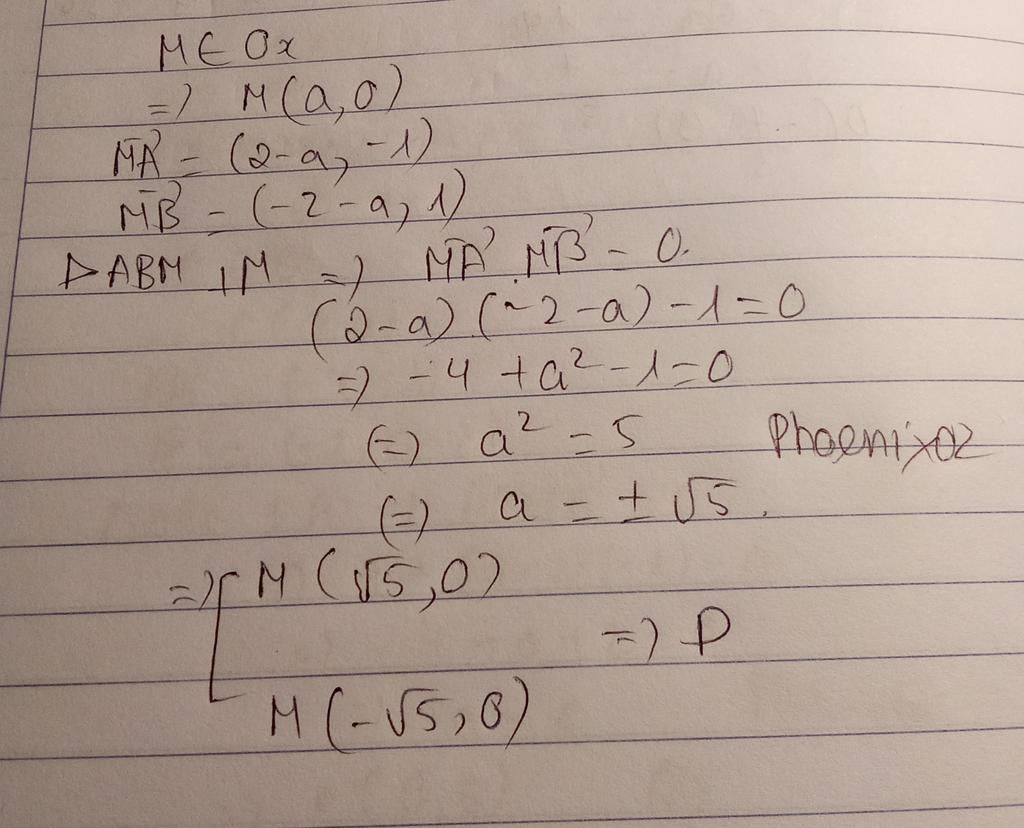 M ∈ Ox
=> M(a,0)
MA→ = (2-a, -1)
MB→ = (-2-a, 1)
△ABM ⊥ M => MA→ . MB→ = 0.
(2-a)(-2-a) - 1 = 0
=> -4 + a² - 1 = 0
(=) a² = 5
Phoenix02
(=) a = ± √5.
=> [ M(√5,0)
=> D
M(-√5,0)